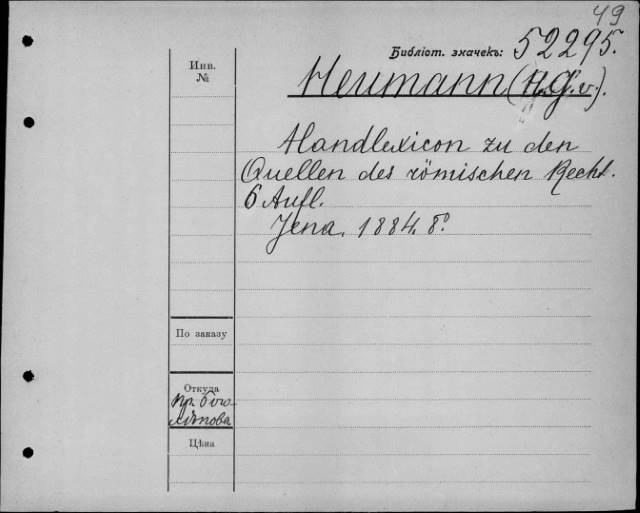 49
Библіот. значекъ: 52295.
Инв.
№
Heumann (H. G. v.).
Handlexicon zu den
Quellen des römischen Recht.
6 Aufl.
Jena. 1884. 8°
По заказу
Откуда
пр. Бого-
лѣпова
Цѣна